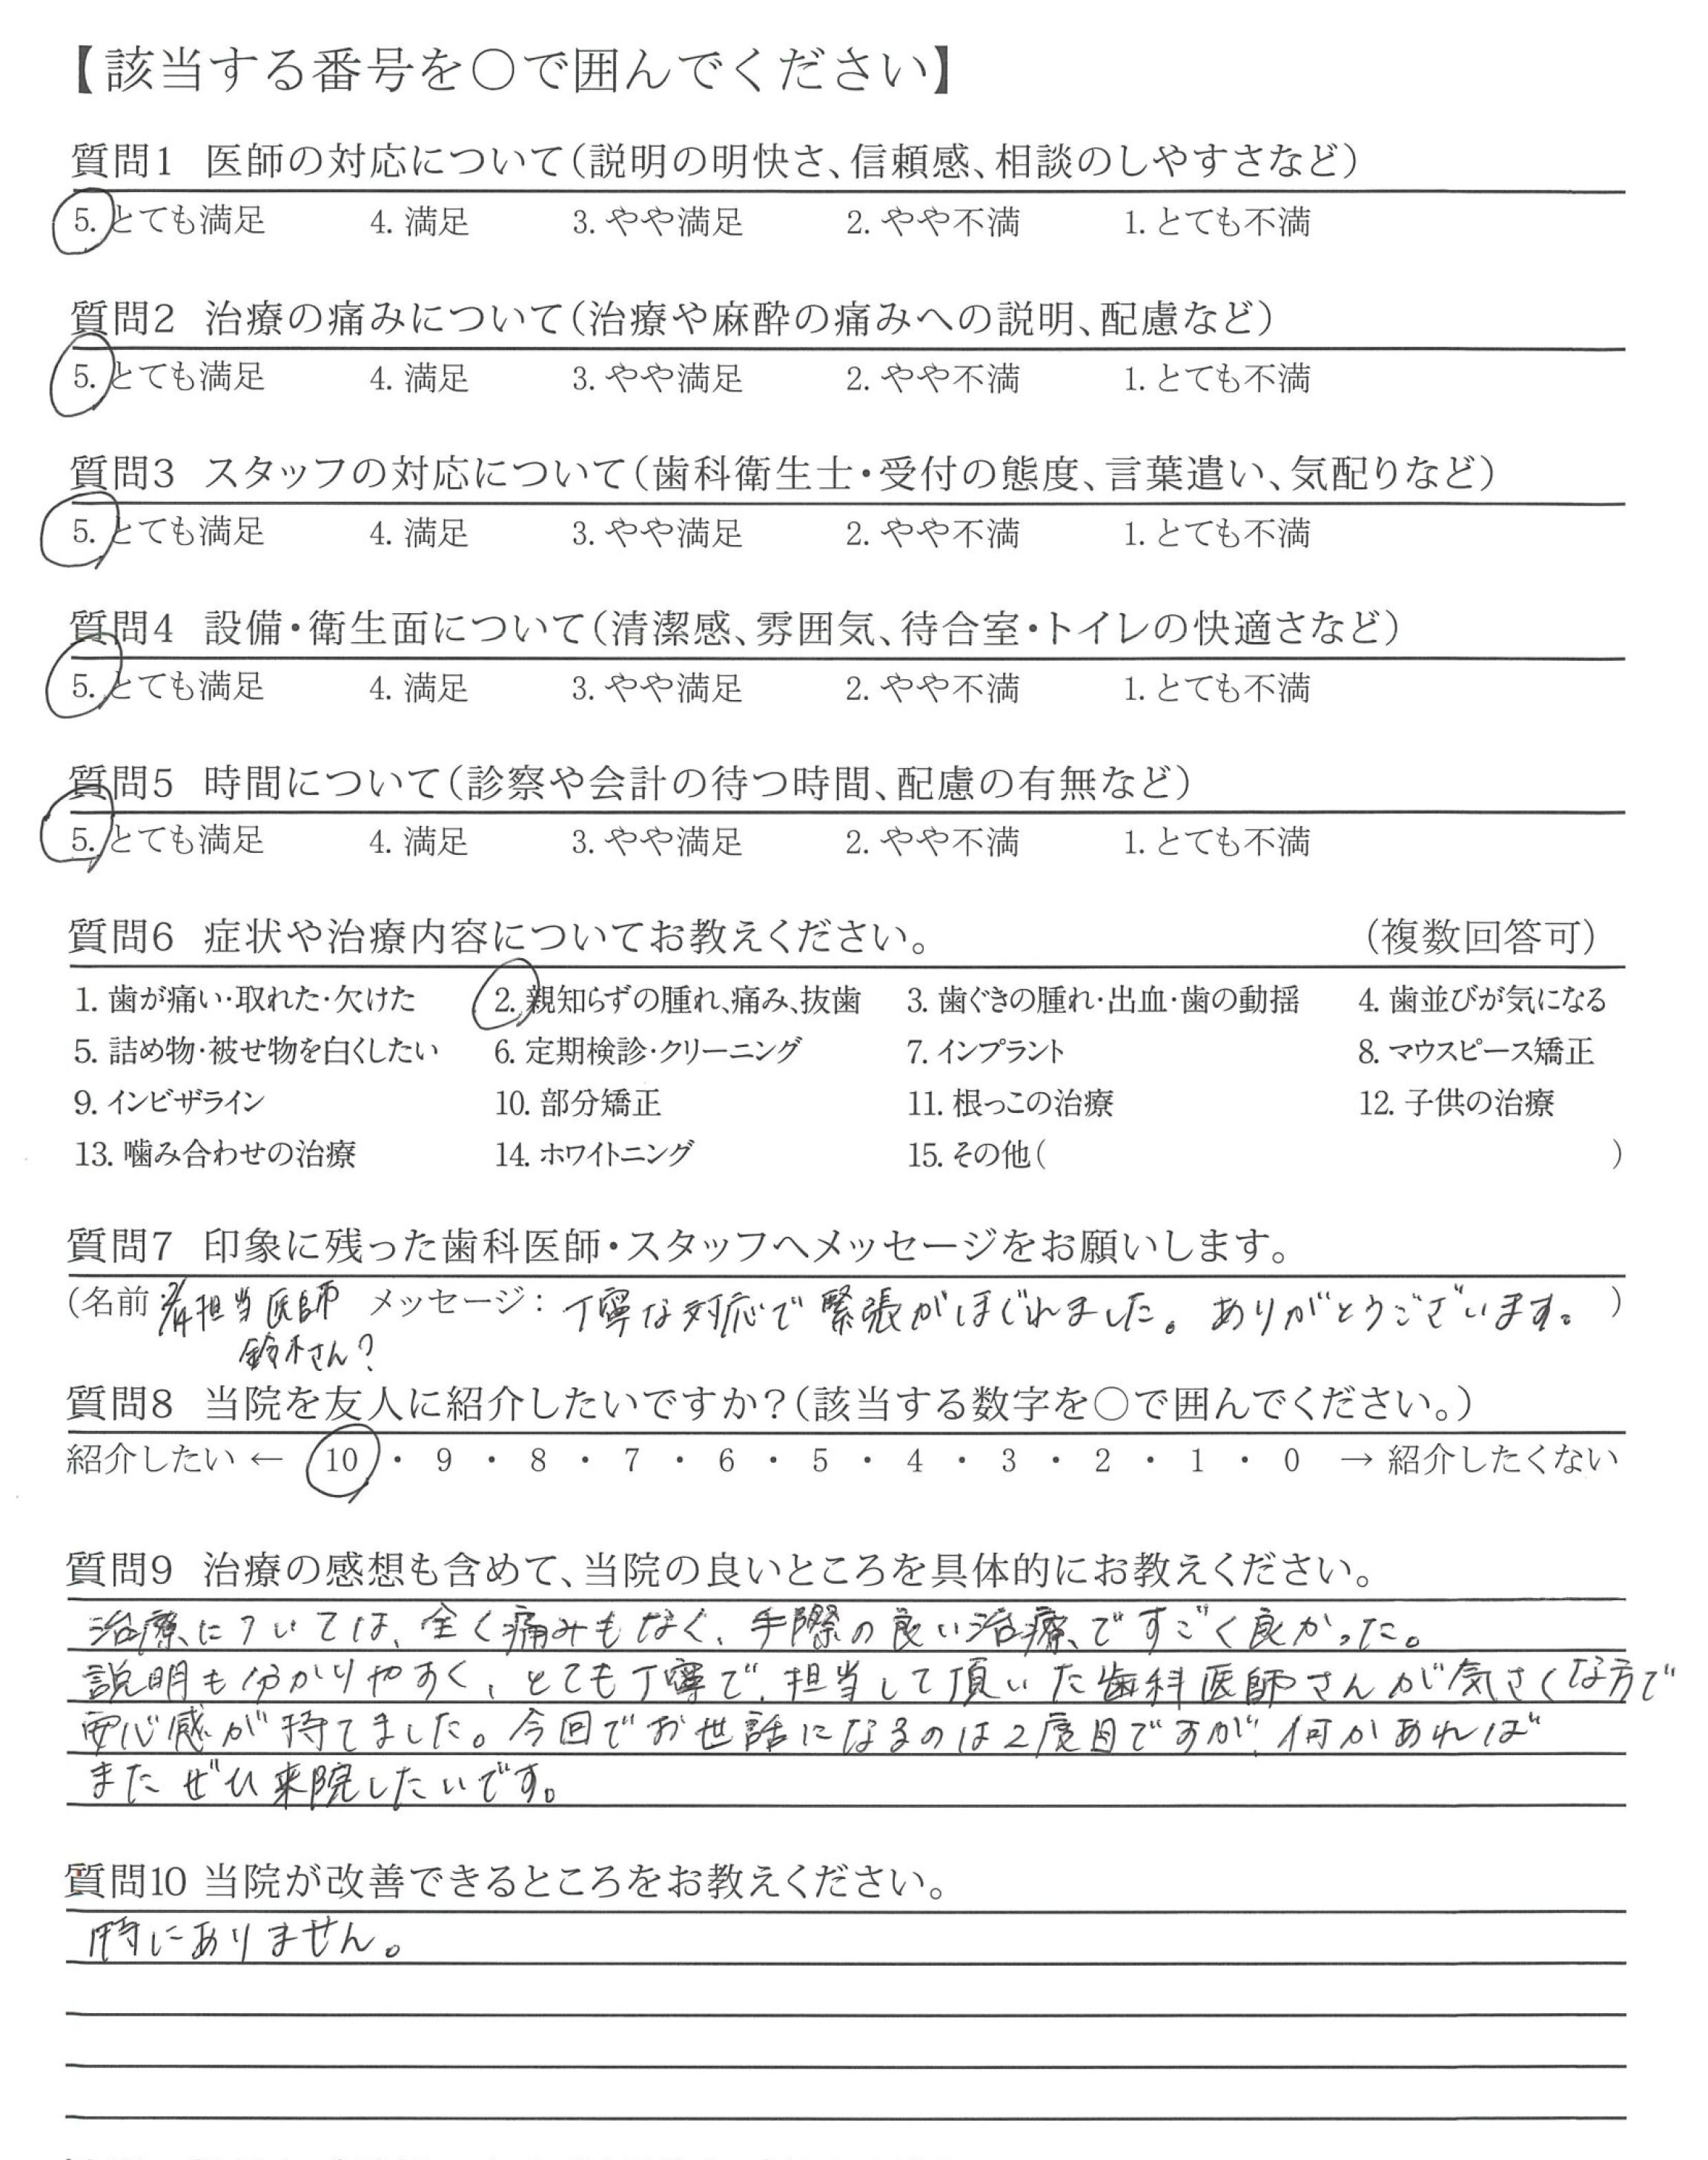 【該当する番号を○で囲んでください】
質問1 医師の対応について(説明の明快さ、信頼感、相談のしやすさなど)
5. とても満足 4. 満足 3. やや満足 2. やや不満 1. とても不満
質問2 治療の痛みについて(治療や麻酔の痛みへの説明、配慮など)
5. とても満足 4. 満足 3. やや満足 2. やや不満 1. とても不満
質問3 スタッフの対応について(歯科衛生士・受付の態度、言葉遣い、気配りなど)
5. とても満足 4. 満足 3. やや満足 2. やや不満 1. とても不満
質問4 設備・衛生面について(清潔感、雰囲気、待合室・トイレの快適さなど)
5. とても満足 4. 満足 3. やや満足 2. やや不満 1. とても不満
質問5 時間について(診察や会計の待つ時間、配慮の有無など)
5. とても満足 4. 満足 3. やや満足 2. やや不満 1. とても不満
質問6 症状や治療内容についてお教えください。 (複数回答可)
1. 歯が痛い・取れた・欠けた 2. 親知らずの腫れ、痛み、抜歯 3. 歯ぐきの腫れ・出血・歯の動揺 4. 歯並びが気になる
5. 詰め物・被せ物を白くしたい 6. 定期検診・クリーニング 7. インプラント 8. マウスピース矯正
9. インビザライン 10. 部分矯正 11. 根っこの治療 12. 子供の治療
13. 噛み合わせの治療 14. ホワイトニング 15. その他( )
質問7 印象に残った歯科医師・スタッフへメッセージをお願いします。
(名前: 担当医師 メッセージ: 丁寧な対応で緊張がほぐれました。ありがとうございます。 )
鈴木さん?
質問8 当院を友人に紹介したいですか?(該当する数字を○で囲んでください。)
紹介したい ← 10 ・ 9 ・ 8 ・ 7 ・ 6 ・ 5 ・ 4 ・ 3 ・ 2 ・ 1 ・ 0 → 紹介したくない
質問9 治療の感想も含めて、当院の良いところを具体的にお教えください。
治療については、全く痛みもなく、手際の良い治療ですごく良かった。
説明も分かりやすく、とても丁寧で、担当して頂いた歯科医師さんが気さくな方で
安心感が持てました。今回でお世話になるのは2度目ですが、何かあれば
またぜひ来院したいです。
質問10 当院が改善できるところをお教えください。
特にありません。